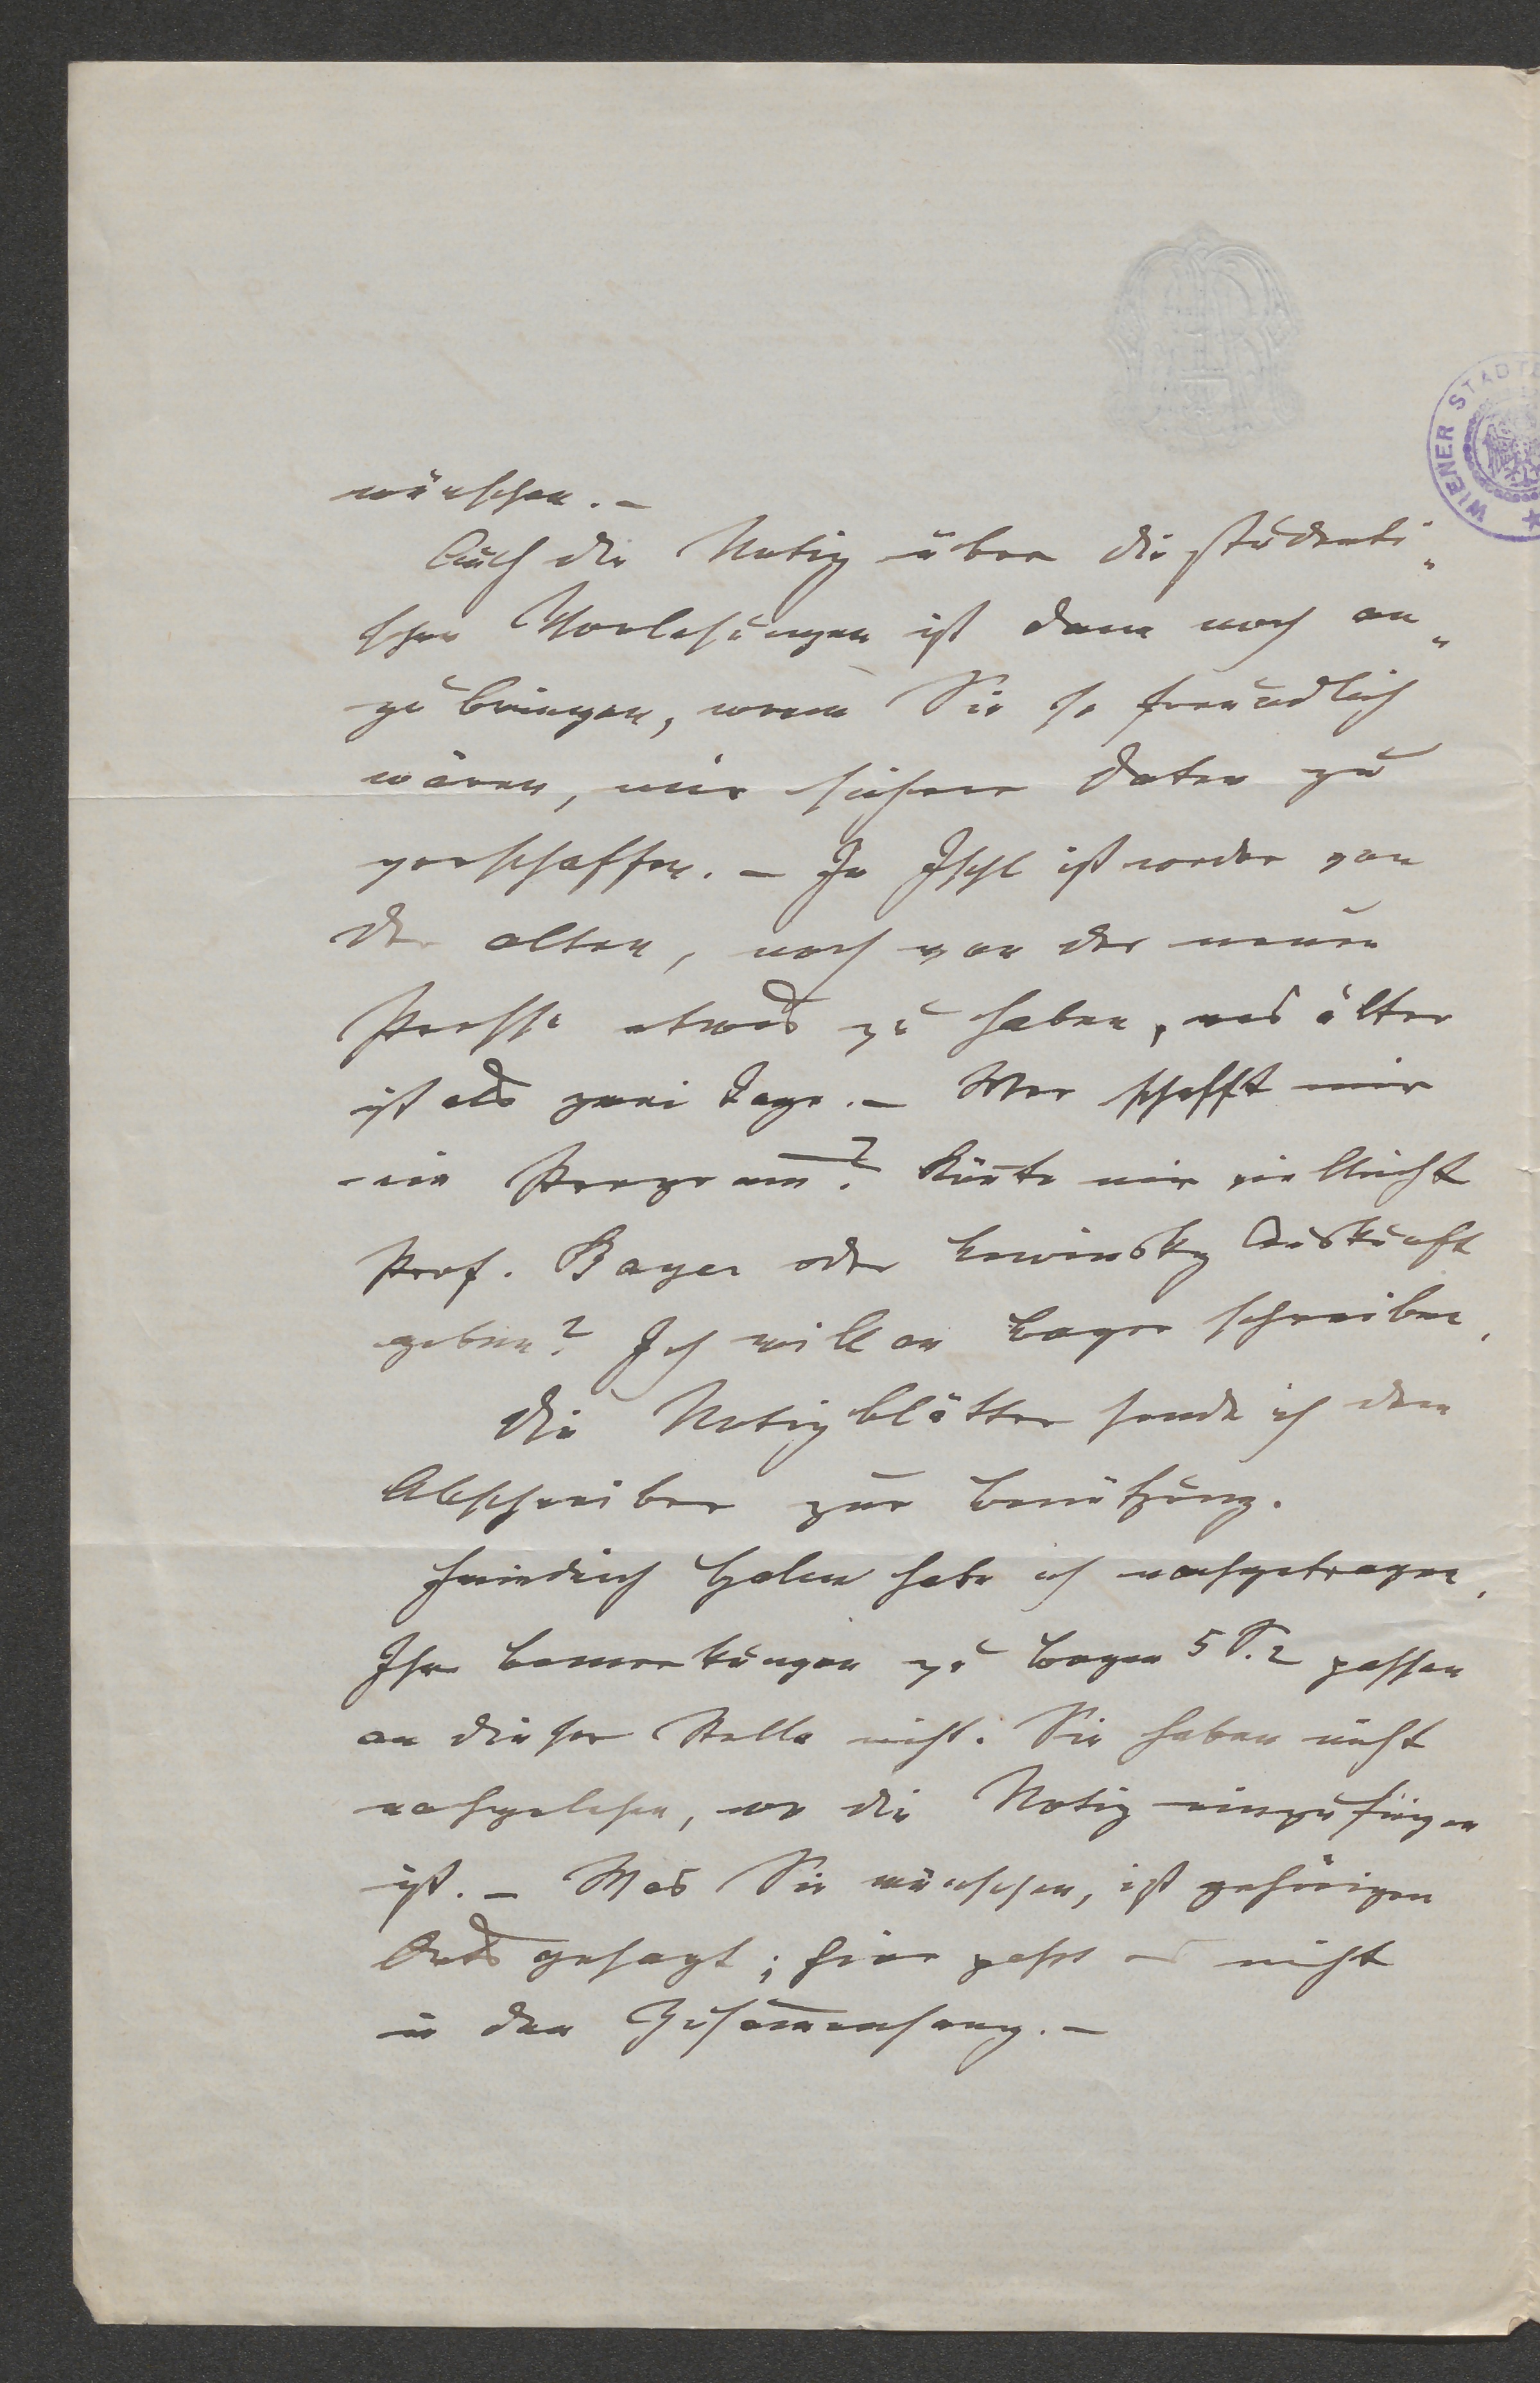 wünschen. –
Auch die Notiz über die studenti„
schen Vorlesungen ist dann noch an„
zubringen, wenn Sie so freundlich
wären, mir sichere Daten zu
verschaffen. – In Ischl ist weder von
der alten, noch von der neuen
Presse etwas zu haben, was älter
ist als zwei Tage. – Wer schafft mir
ein Programm? Könte mir vielleicht
Prof. Bayer oder Lewinsky Auskunft
geben? Ich will an Bayer schreiben.
Die Notizblätter sende ich dem
Abschreiber zur Benützung.
Friedrich Halm habe ich nachgetragen.
Ihre Bemerkungen zu Bogen 5 S. 2 passen
an dieser Stelle nicht. Sie haben nicht
nachgelesen, wo die Notiz einzufügen
ist. – Was Sie wünschen, ist gehörigen
Orts gesagt; hier passt es nicht
in den Zusam̄enhang. –
WIENER STADT